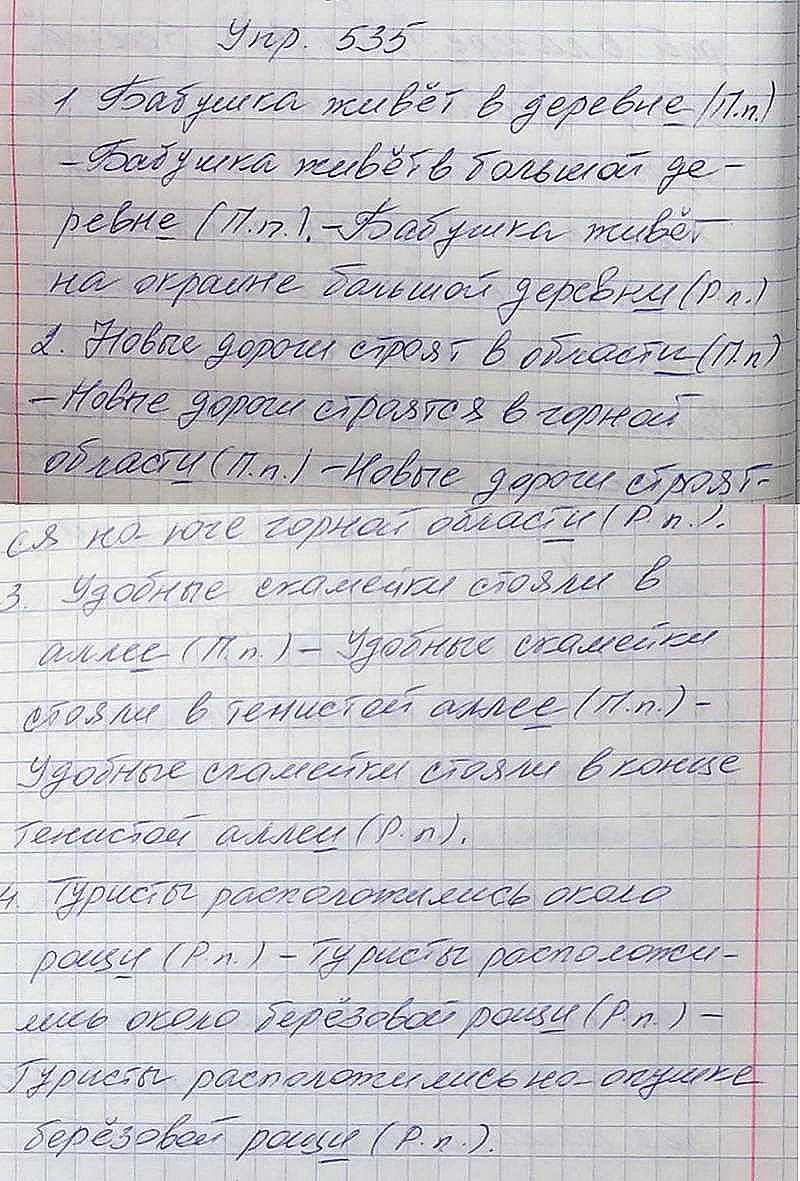 Упр. 535
1 Бабушка живёт в деревне (П.п.)
- Бабушка живёт в большой де-
ревне (П.п.). - Бабушка живёт
на окраине большой деревни (Р.п.)
2. Новые дороги строят в области (П.п)
- Новые дороги строятся в горной
области (П.п.) - Новые дороги строят-
ся на юге горной области (Р.п.).
3. Удобные скамейки стояли в
аллее (П.п.) - Удобные скамейки
стояли в тенистой аллее (П.п.) -
Удобные скамейки стояли в конце
тенистой аллеи (Р.п).
4. Туристы расположились около
рощи (Р.п.) - Туристы расположи-
лись около берёзовой рощи (Р.п.) -
Туристы расположились на опушке
берёзовой рощи (Р.п.).